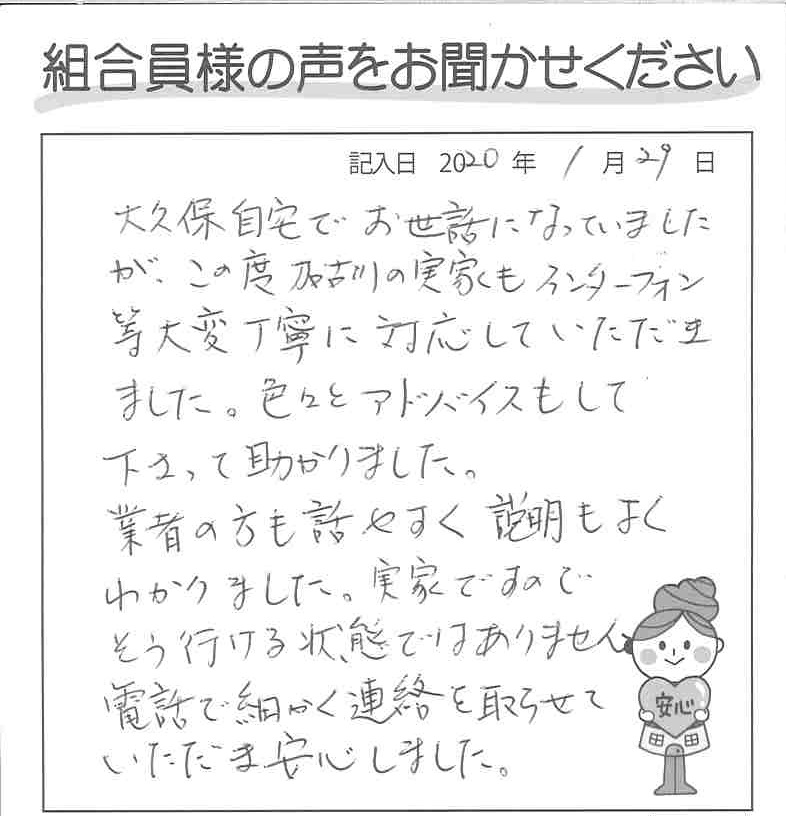 組合員様の声をお聞かせください
記入日 2020 年 1 月 29 日
大久保自宅でお世話になっていました
が、この度加古川の実家もインターフォン
等大変丁寧に対応していただき
ました。色々とアドバイスもして
下さって助かりました。
業者の方も話やすく説明もよく
わかりました。実家ですので
そう行ける状態ではありません
電話で細かく連絡を取らせて
いただき安心しました。
安心